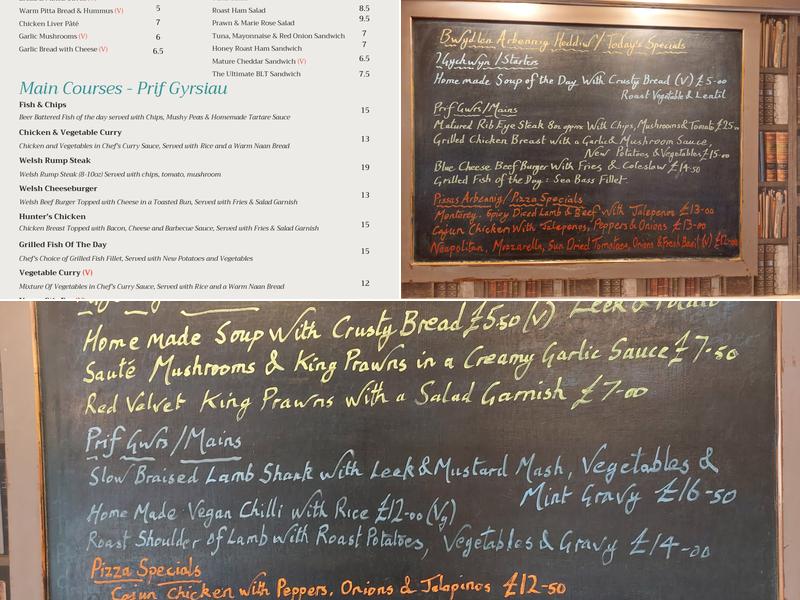 Warm Pitta Bread & Hummus (V) 5
Chicken Liver Pâté 7
Garlic Mushrooms (V) 6
Garlic Bread with Cheese (V) 6.5
Roast Ham Salad 8.5
Prawn & Marie Rose Salad 9.5
Tuna, Mayonnaise & Red Onion Sandwich 7
Honey Roast Ham Sandwich 7
Mature Cheddar Sandwich (V) 6.5
The Ultimate BLT Sandwich 7.5
Main Courses - Prif Gyrsiau
Fish & Chips
Beer Battered Fish of the day served with Chips, Mushy Peas & Homemade Tartare Sauce 15
Chicken & Vegetable Curry
Chicken and Vegetables in Chef's Curry Sauce, Served with Rice and a Warm Naan Bread 13
Welsh Rump Steak
Welsh Rump Steak (8-10oz) Served with chips, tomato, mushroom 19
Welsh Cheeseburger
Welsh Beef Burger Topped with Cheese in a Toasted Bun, Served with Fries & Salad Garnish 13
Hunter's Chicken
Chicken Breast Topped with Bacon, Cheese and Barbecue Sauce, Served with Fries & Salad Garnish 15
Grilled Fish Of The Day
Chef's Choice of Grilled Fish Fillet, Served with New Potatoes and Vegetables 15
Vegetable Curry (V)
Mixture Of Vegetables in Chef's Curry Sauce, Served with Rice and a Warm Naan Bread 12
Bwydlen Arbennig Heddiw/Today's Specials
I Gychwyn/Starters
Home made Soup of the Day With Crusty Bread (V) £5-00
Roast Vegetable & Lentil
Prif Gwrs/Mains
Matured Rib Eye Steak 8oz approx With Chips, Mushrooms & Tomato £25-00
Grilled Chicken Breast with a Garlic & Mushroom Sauce,
New Potatoes & Vegetables £15-00
Blue Cheese Beef Burger With Fries & Coleslaw £14-50
Grilled Fish of the Day: Sea Bass Fillet
Pizzas Arbennig/Pizza Specials
Monterey, Spicy Diced Lamb & Beef With Jalepenos £13-00
Cajun Chicken With Jalepenos, Peppers & Onions £13-00
Neapolitan, Mozzarella, Sun Dried Tomatoes, Onions & Fresh Basil (V) £12-00
Home made Soup With Crusty Bread £5.50 (V) Leek & Potato
Sauté Mushrooms & King Prawns in a Creamy Garlic Sauce £7-50
Red Velvet King Prawns With a Salad Garnish £7-00
Prif Gwrs/Mains
Slow Braised Lamb Shank with Leek & Mustard Mash, Vegetables &
Mint Gravy £16-50
Home Made Vegan Chilli with Rice £12-00 (Vg)
Roast Shoulder of Lamb with Roast Potatoes, Vegetables & Gravy £14-00
Pizza Specials
Cajun Chicken with Peppers, Onions & Jalapinos £12-50